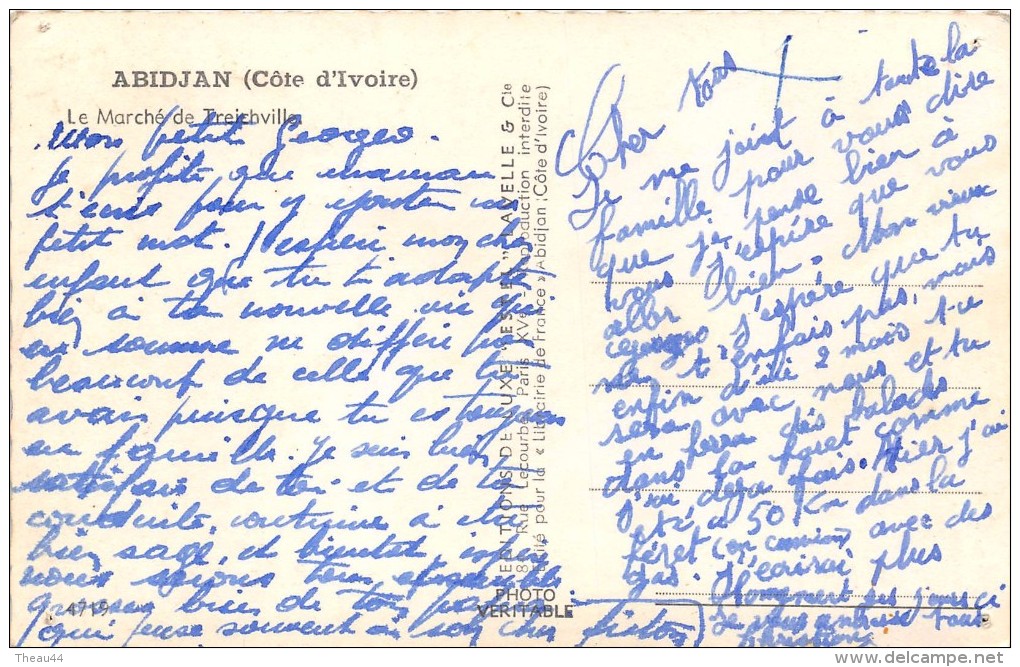 ABIDJAN (Côte d'Ivoire)
Le Marché de Treichville
Mon petit Georges.
Je profite que maman
t'écris pour y ajouter un
petit mot. J'espère mon cher
enfant que tu t'adaptes
bien à ta nouvelle vie qui
en somme ne diffère pas
beaucoup de celle que tu
avais puisque tu es toujours
en famille. Je suis bien
satisfais de toi et de ta
conduite, continue à être
bien sage, et bientôt
nous serons tous ensemble
gros bises de ton
(qui pense souvent à son cher fiston)
4719
EDITIONS DE LUXE "ESTEL" LAVELLE & Cie
Rue Lecourbe, Paris XVe - Reproduction interdite
Edité pour la « Librairie de France » Abidjan (Côte d'Ivoire)
PHOTO
VERITABLE
Cher tous
Je me joint à toute la
famille pour vous dire
que je pense bien à
vous. J'espère que vous
aller bien. Mon vieux
Georges j'espère que tu
ne t'enfais pas, mais
enfin d'ici 2 mois tu
sera avec nous et tu
en fera des balades
dans la foret comme
j'ai deja fais. Hier j'ai
été à 50 Km dans la
foret (en camion) avec des
gas. J'écrirai plus
longment ces jours ci
Je vous embrasse tous